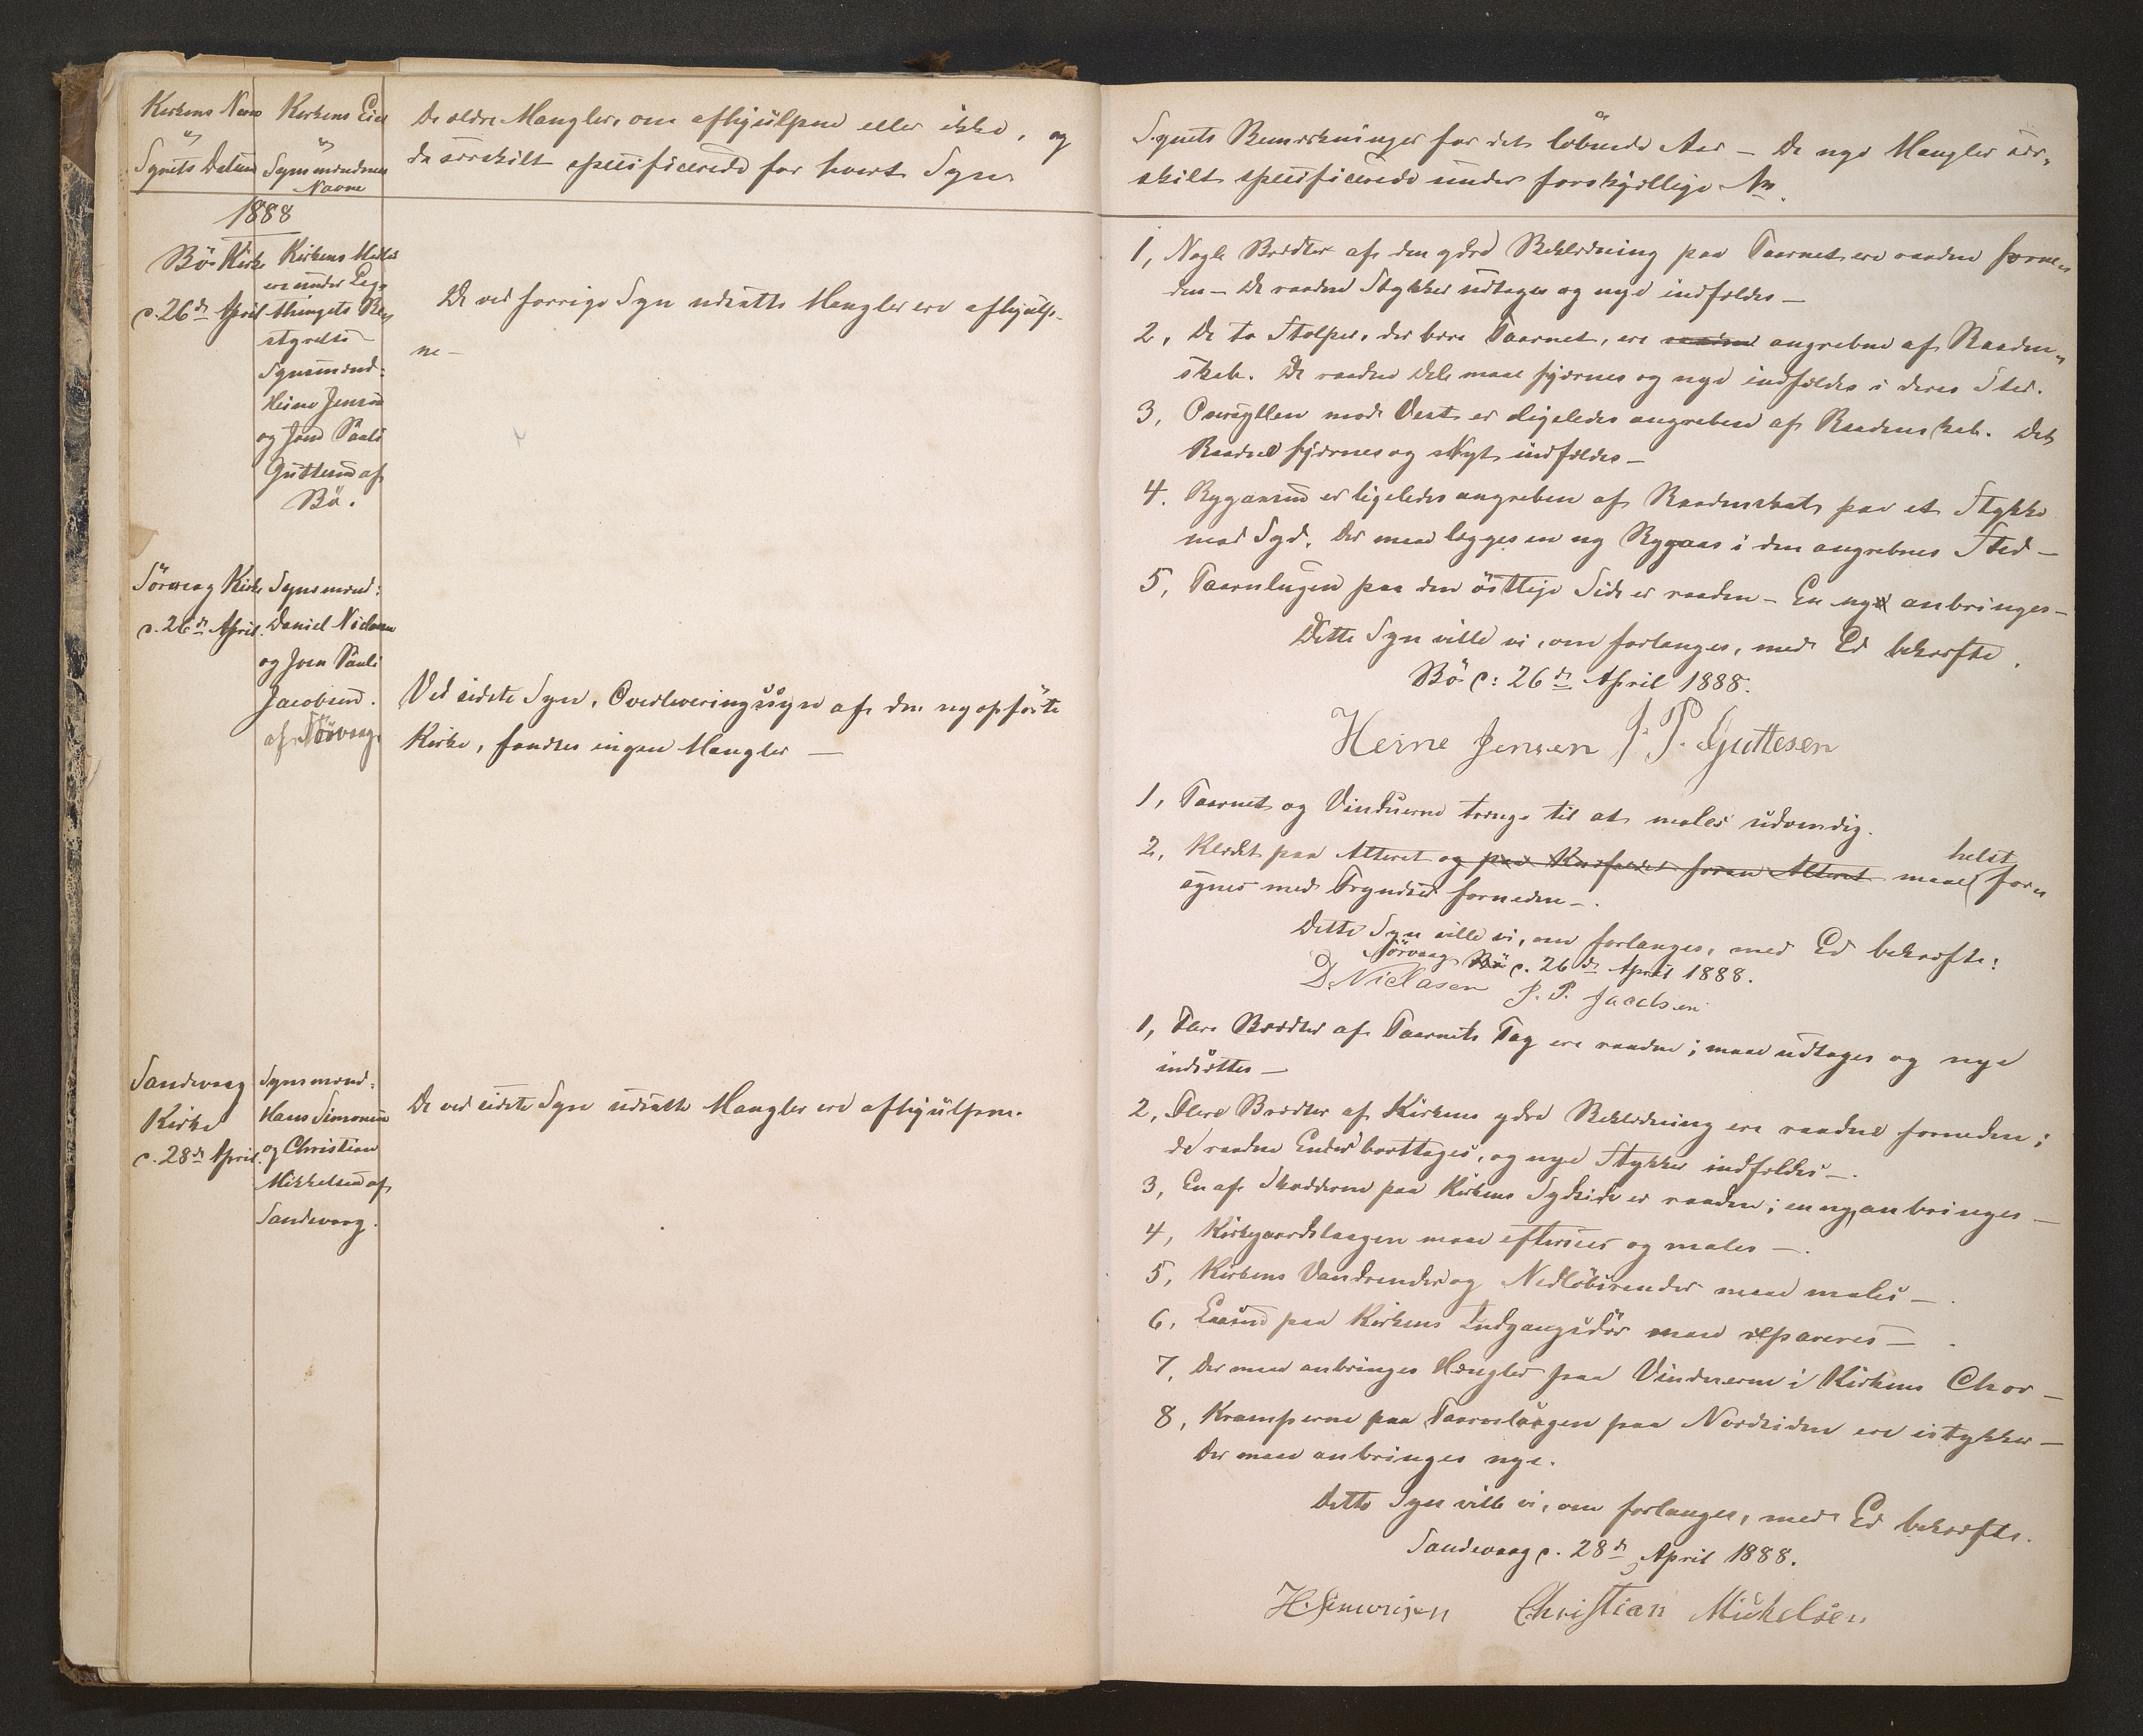 Kirkens Navn
og
Synets Datum
Kirkens Eier
og
Synsmændenes
Navne
De ældre Mangler, om afhjulpne eller ikke, og
de særskilt specificerede for hvert Syn
1888
Bö Kirke
d. 26de April
Kirkens Midler
ere under Lag-
thingets Be-
styrelse
Synsmænd:
Heine Jensen
og Joen Pauli
Guttesen af
Bö.
De ved forrige Syn udsatte Mangler ere afhjulp-
ne —
Sörvaag Kirke
d. 26de April.
Synsmænd:
Daniel Niclasen
og Joen Pauli
Jacobsen.
af Sörvaag
Ved sidste Syn, Overleveringssyn af den nyopförte
Kirke, fandtes ingen Mangler —
Sandevaag
Kirke
d. 28de April.
Synsmænd:
Hans Simonsen
og Christian
Mikkelsen af
Sandevaag.
De ved sidste Syn udsatte Mangler ere afhjulpne.
Synets Bemærkninger for det löbende Aar — De nye Mangler sær-
skilt specificerede under forskjellige No.
1, Nogle Brædter af den ydre Beklædning paa Taarnet ere raadne forne-
den — De raadne Stykker udtages og nye indfældes —
2, De to Stolper, der bære Taarnet, ere raadne angrebne af Raaden-
skab. De raadne Dele maae fjernes og nye indfældes i deres Sted.
3, Oversyllen mod Vest er ligeledes angreben af Raadenskab. Det
Raadne fjernes og Nyt indfældes —
4. Rygaasen er ligeledes angreben af Raadenskab paa et Stykke
mod Syd. Der maa lægges en ny Rygaas i den angrebnes Sted —
5, Taarnlugen paa den östlige Side er raaden — En ny anbringes —
Dette Syn ville vi, om forlanges, med Ed bekræfte.
Bö d: 26de April 1888.
Heine Jensen J. P. Guttesen
1, Taarnet og Vinduerne trænge til at males udvendig.
2, Klædet paa Alteret og paa Knæfaldet foran Alteret maae helst for-
synes med Fryndser forneden —.
Dette Syn ville vi, om forlanges, med Ed bekræfte:
Sörvaag Bö d. 26de April 1888.
D. Niclasen J. P. Jacobsen
1, Flere Brædter af Taarnets Tag ere raadne; maae udtages og nye
indsættes —
2, Flere Brædter af Kirkens ydre Beklædning ere raadne forneden;
de raadne Ender borttages, og nye Stykker indfældes —.
3, En af Skodderne paa Kirkens Sydside er raaden; en ny anbringes —
4, Kirkegaardslaagen maae eftersees og males —.
5, Kirkens Vandrender og Nedlöbsrender maae males —.
6, Laasen paa Kirkens Indgangsdör maae repareres —.
7, Der maae anbringes Hængsler paa Vinduerne i Kirkens Chor —
8, Kramperne paa Taarnlaagen paa Nordsiden ere istykker —
Der maae anbringes nye.
Dette Syn ville vi, om forlanges, med Ed bekræfte.
Sandevaag d. 28de April 1888.
H. Simonsen Christian Mickelsen